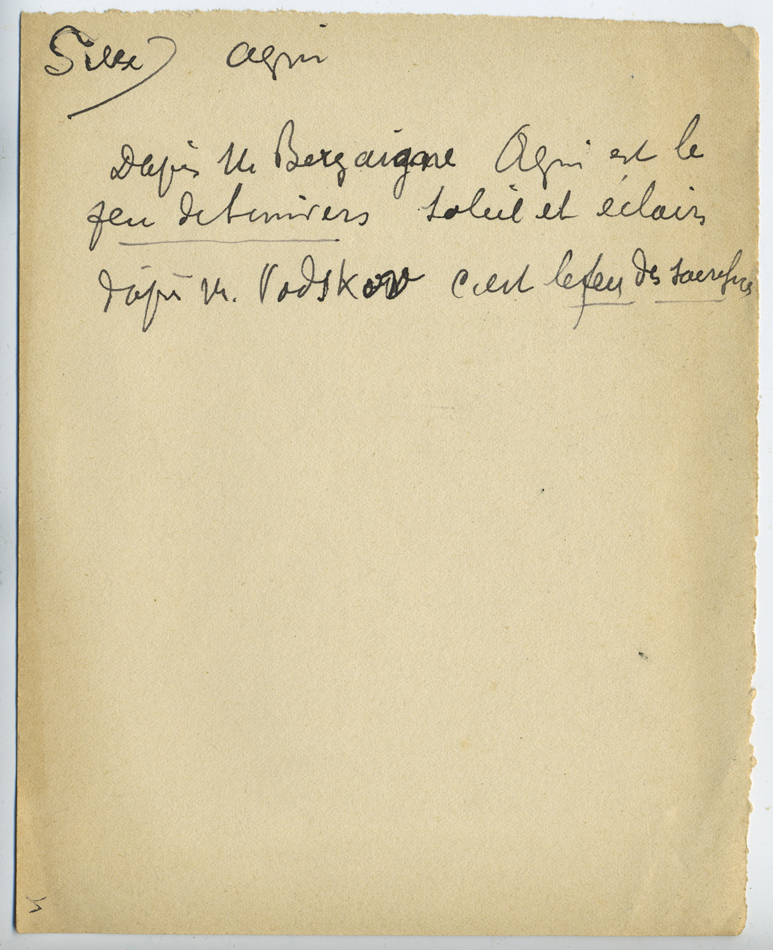 Agni
D'après M. Bergaigne Agni est le
feu de l'univers soleil et éclairs
d'après M. Vodskov c'est le feu des sacrifices